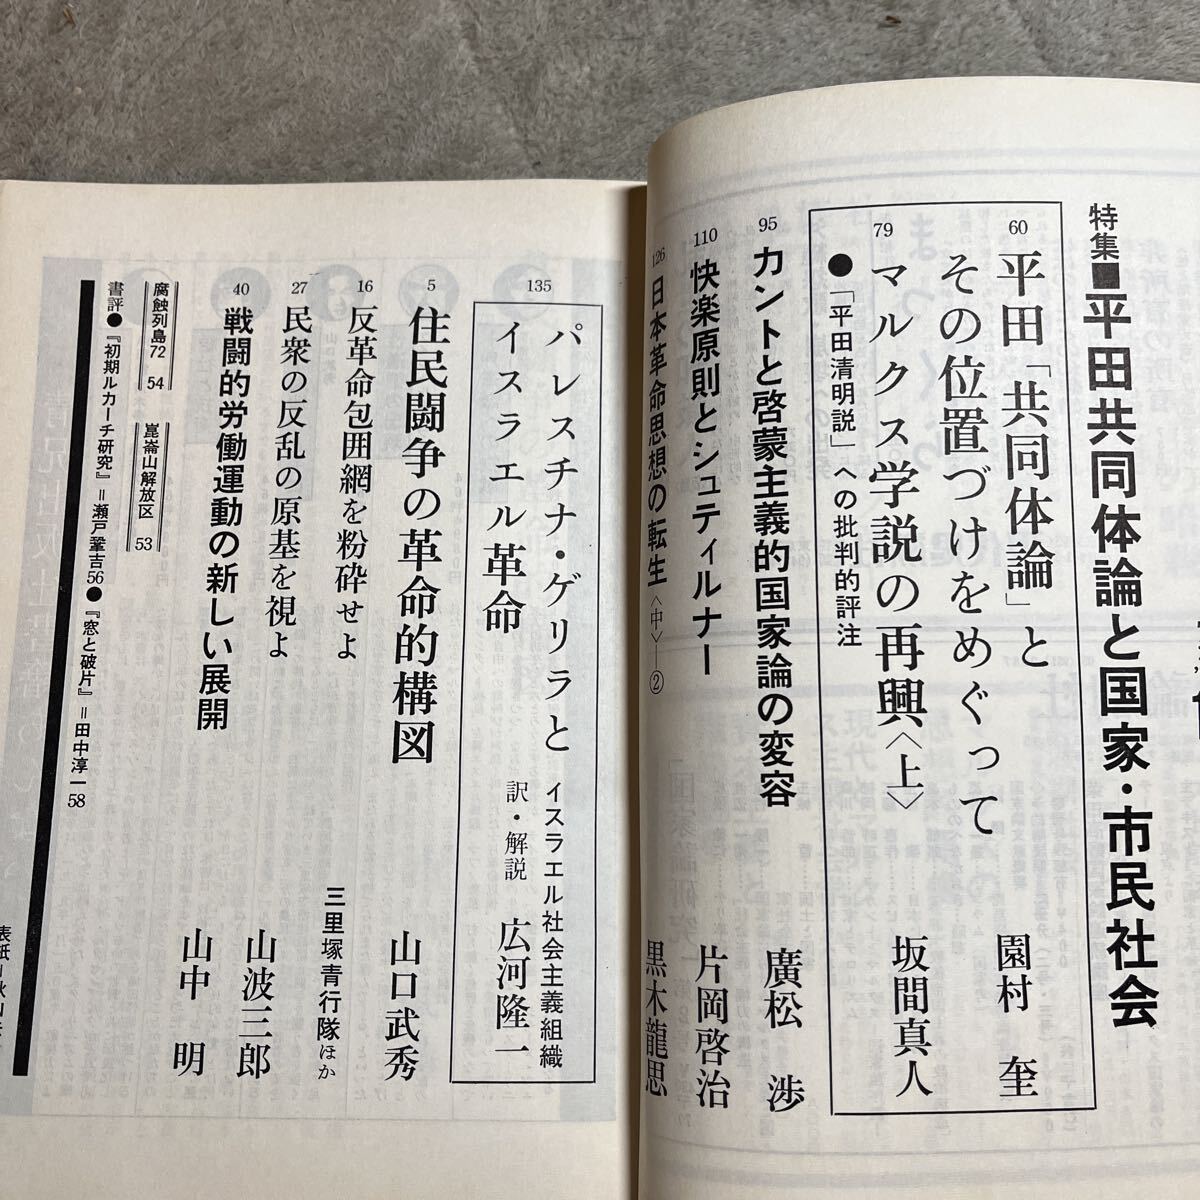 特集■平田共同体論と国家・市民社会
60 平田「共同体論」と
その位置づけをめぐって 園村 奎
79 マルクス学説の再興〈上〉 坂間真人
●「平田清明説」への批判的評注
95 カントと啓蒙主義的国家論の変容 廣松 渉
110 快楽原則とシュティルナー 片岡啓治
126 日本革命思想の転生〈中〉―② 黒木龍思
135 パレスチナ・ゲリラと イスラエル社会主義組織
イスラエル革命 訳・解説 広河隆一
5 住民闘争の革命的構図 山口武秀
16 反革命包囲網を粉砕せよ 三里塚青行隊ほか
27 民衆の反乱の原基を視よ 山波三郎
40 戦闘的労働運動の新しい展開 山中 明
腐蝕列島72 54 崑崙山解放区 53
書評●『初期ルカーチ研究』＝瀬戸鞏吉56●『窓と破片』＝田中淳一58